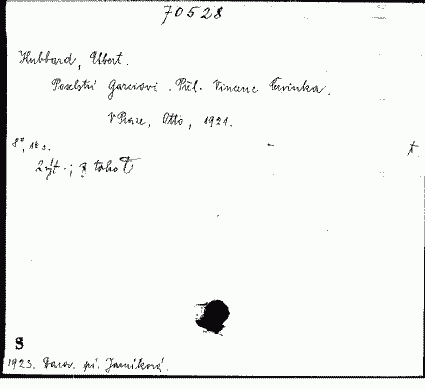 70528
Hubbard, Elbert.
Poselství Garciovi. Přel. Vincenc Červinka.
V Praze, Otto, 1921.
8°, 16 s.
2 výt.; z toho T
t
S
1923. Darov. pí. Janíková.